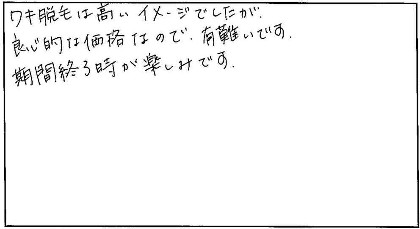 ワキ脱毛は高いイメージでしたが.
良心的な価格なので.有難いです.
期間終る時が楽しみです.